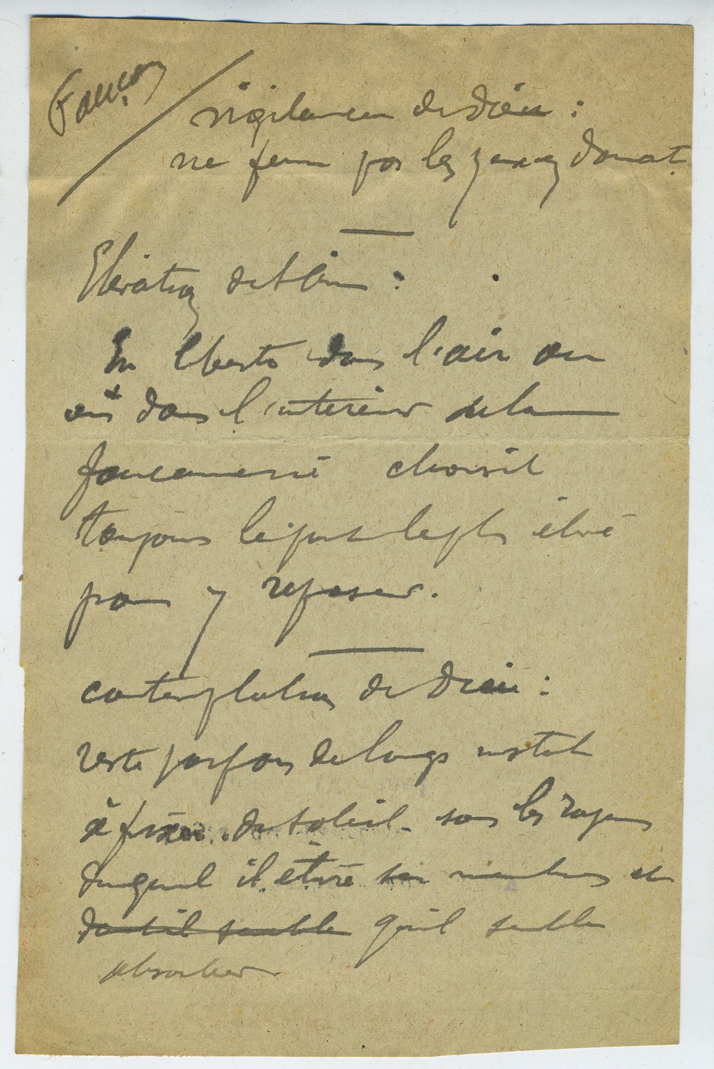 Faucon
vigilance de Dieu :
ne ferme pas les yeux
Elévation de :
En liberté dans l'air ou
dans l'intérieur de la
fauconnerie choisit
toujours le point le plus élevé
pour y reposer.
contemplation de Dieu :
reste parfois de longs instants
à fixer le soleil sous les rayons
duquel il étire ses membres et
dont il semble qu'il semble
absorber